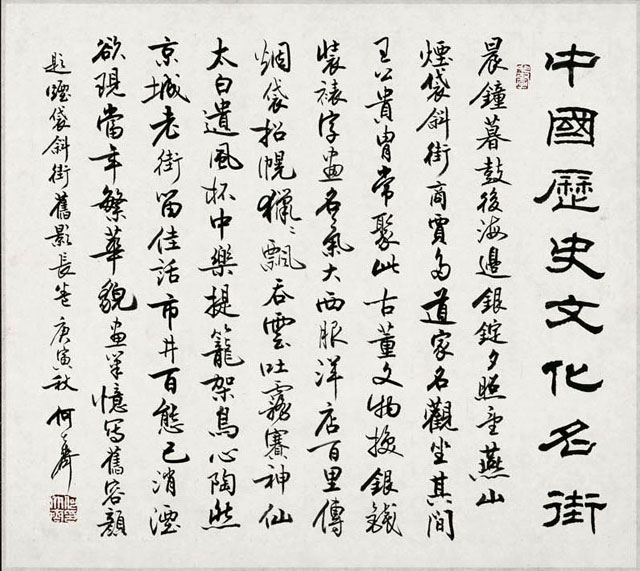 中國歷史文化名街
晨鐘暮鼓後海邊銀錠夕照望燕山
煙袋斜街商賈多道家名觀坐其間
王公貴胄常聚此古董文物換銀錢
裝裱字畫名氣大西服洋店百里傳
烟袋招幌獵獵飄吞雲吐霧賽神仙
太白遺風杯中樂提籠架鳥心陶然
京城老街留佳話市井百態已消湮
欲現當年繁華貌畫筆憶寫舊容顏
題煙袋斜街舊影長卷庚寅秋何